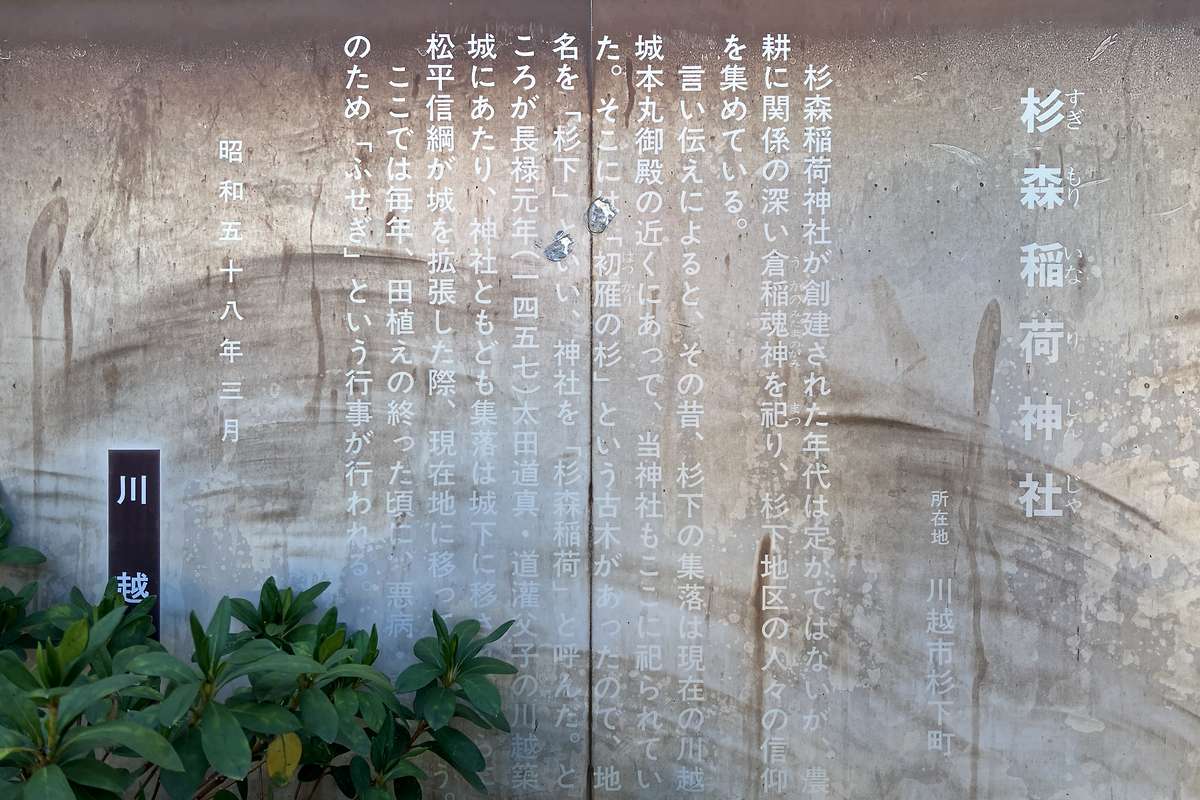 杉森稲荷神社
すぎもりいなりしんじゃ
所在地 川越市杉下町
杉森稲荷神社が創建された年代は定かではないが、農
耕に関係の深い倉稲魂神を祀り、杉下地区の人々の信仰
うかのみたまのかみ
まつ
を集めている。
言い伝えによると、その昔、杉下の集落は現在の川越
城本丸御殿の近くにあって、当神社もここに祀られてい
た。そこには「初雁の杉」という古木があったので、地
はつかり
名を「杉下」といい、神社を「杉森稲荷」と呼んだ。と
ころが長禄元年(一四五七)太田道真・道灌父子の川越築
城にあたり、神社ともども集落は城下に移さ
松平信綱が城を拡張した際、現在地に移っ
う。
ここでは毎年、田植えの終った頃に、悪病
のため「ふせぎ」という行事が行われる。
昭和五十八年三月
川越